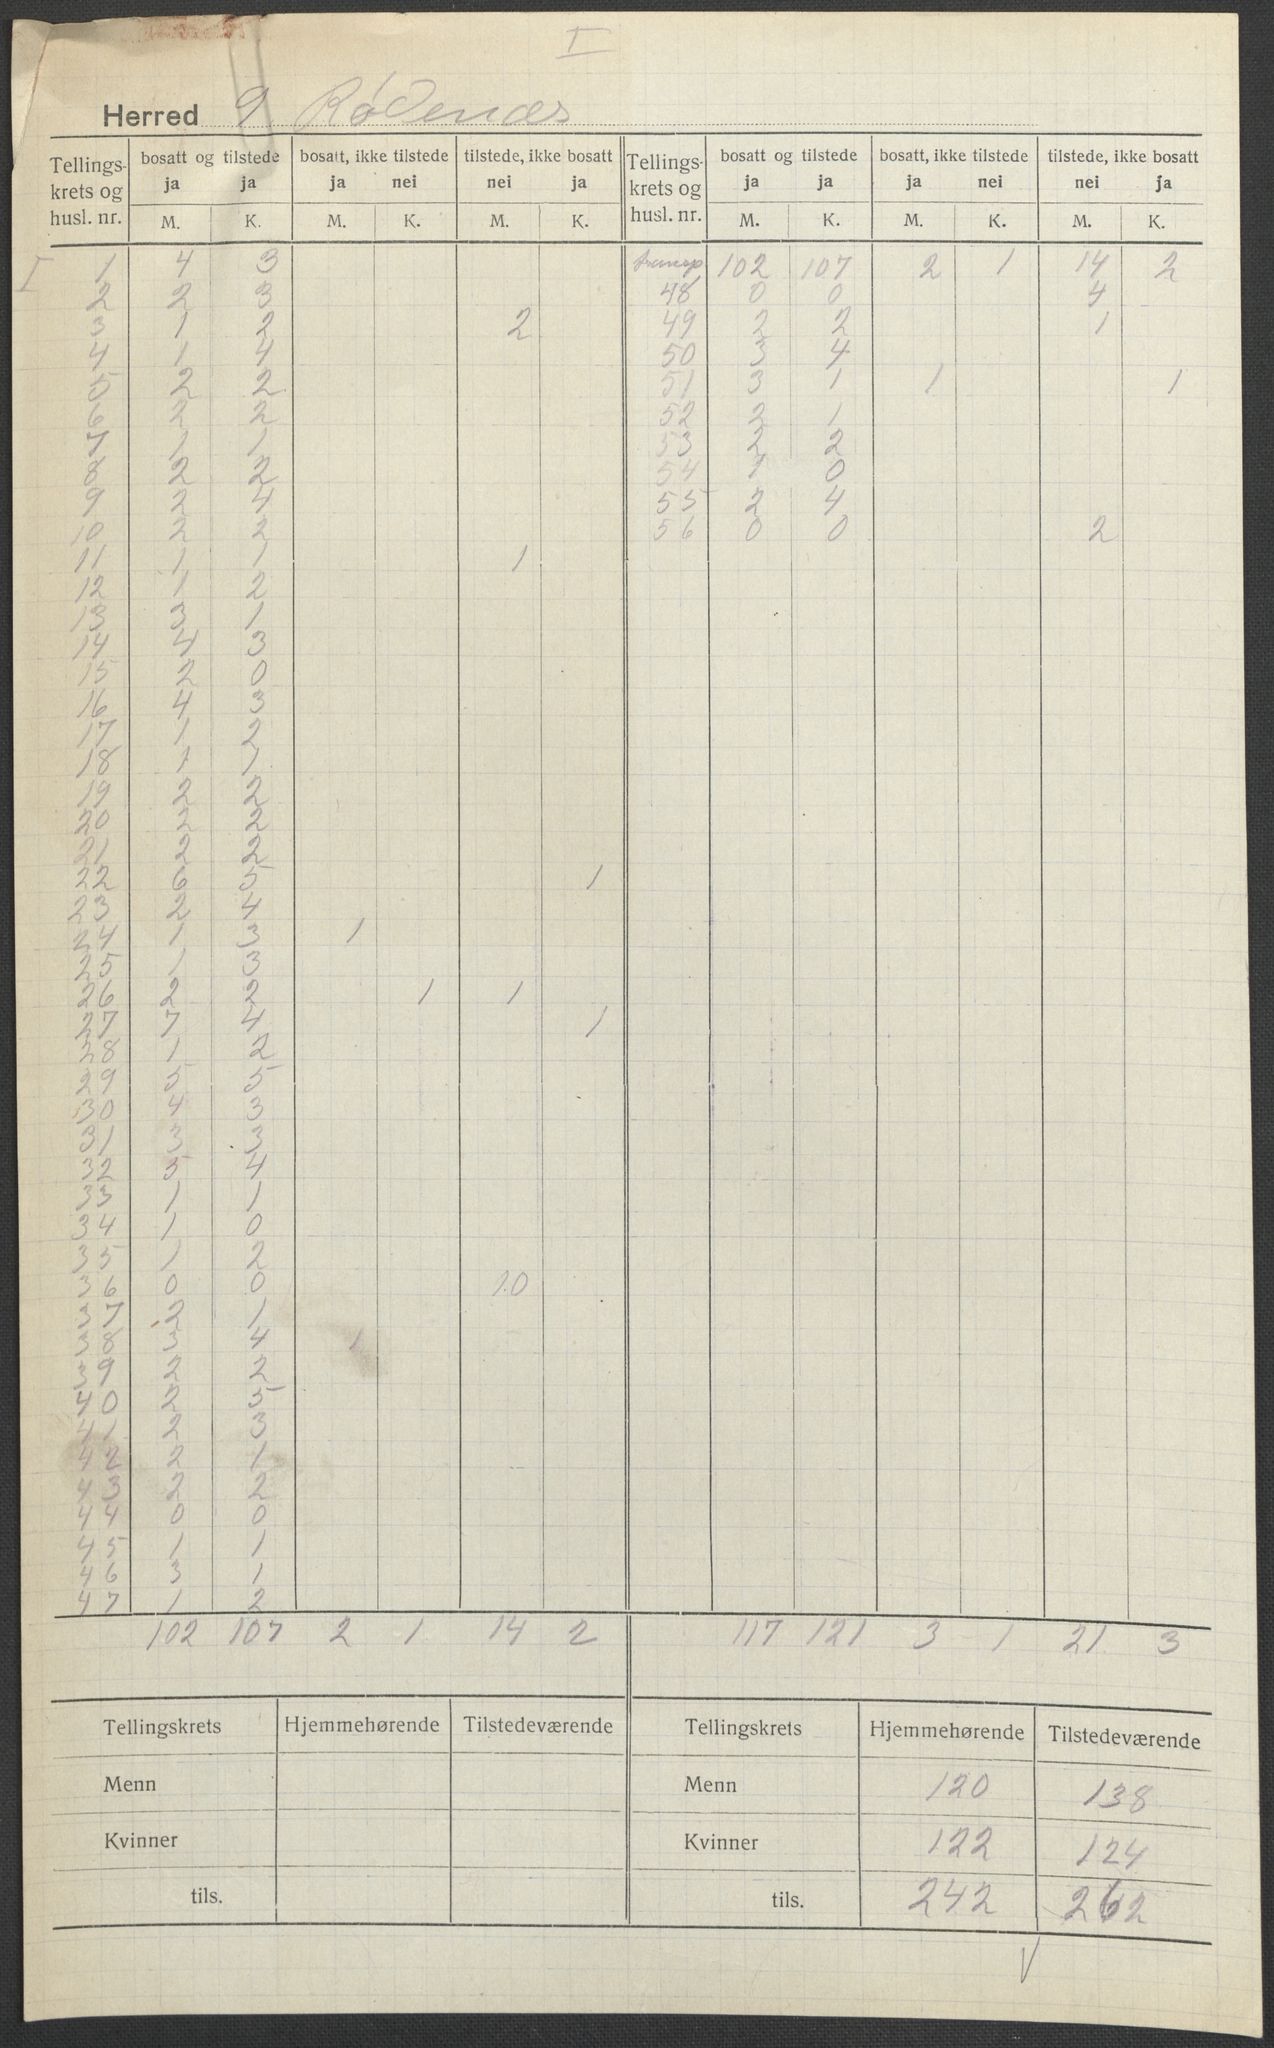 I
Herred 9 Rødenæs
Tellings-krets og husl. nr. | bosatt og tilstede ja ja | bosatt, ikke tilstede ja nei | tilstede, ikke bosatt nei ja | Tellings-krets og husl. nr. | bosatt og tilstede ja ja | bosatt, ikke tilstede ja nei | tilstede, ikke bosatt nei ja
M. K. M. K. M. K. M. K. M. K. M. K.
I 1 4 3 transp 102 107 2 1 14 2
2 2 3 48 0 0 4
3 1 2 2 49 2 2 1
4 1 4 50 3 4
5 2 2 51 3 1 1 1
6 2 2 52 2 1
7 1 1 53 2 2
8 2 2 54 1 0
9 2 4 55 2 4
10 2 2 56 0 0 2
11 1 1 1
12 1 2
13 3 1
14 4 3
15 2 0
16 4 3
17 1 2
18 1 1
19 2 2
20 2 2
21 2 2
22 6 5 1
23 2 4
24 1 3 1
25 1 3
26 2 2 1 1
27 7 4 1
28 1 2
29 5 5
30 4 3
31 3 3
32 5 4
33 1 1
34 1 0
35 1 2
36 0 0 10
37 2 1
38 3 4 1
39 2 2
40 2 5
41 2 3
42 2 1
43 2 2
44 0 0
45 1 1
46 3 1
47 1 2
102 107 2 1 14 2 117 121 3 1 21 3
Tellingskrets Hjemmehørende Tilstedeværende Tellingskrets Hjemmehørende Tilstedeværende
Menn Menn 120 138
Kvinner Kvinner 122 124
tils. tils. 242 262